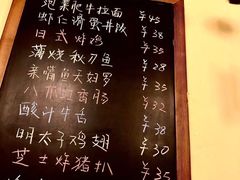 泡菜肥牛拉面
虾仁滑蛋丼饭 ¥45
日式炸鸡 ¥38
蒲烧秋刀鱼 ¥35
亲嘴鱼天妇罗 ¥38
八爪鱼香肠 ¥32
酸汁牛舌 ¥38
明太子鸡翅 ¥30
芝士炸猪扒 ¥35